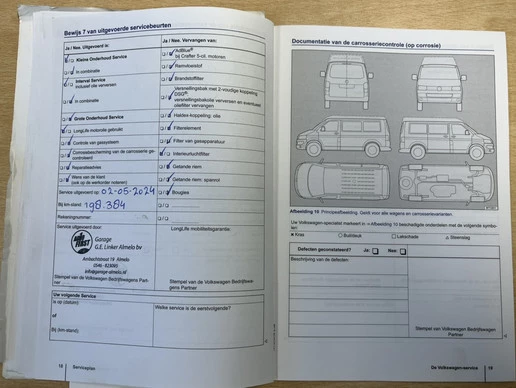 Bewijs 7 van uitgevoerde servicebeurten
Ja / Nee. Uitgevoerd is:
Kleine Onderhoud Service
In combinatie
Interval Service
inclusief olie verversen
In combinatie
Grote Onderhoud Service
LongLife motorolie gebruikt
Controle van gassysteem
Corrosiebescherming van de carrosserie gecontroleerd
Reparatieadvies
Wens van de klant
(ook op de werkorder noteren)
Service uitgevoerd op 02-05-2024
Bij km-stand: 198.384
Rekeningnummer:
Service uitgevoerd door:
AUTO FIRST
Garage
G.E. Linker Almelo bv
Ambachtstraat 19 Almelo
0546-823093
info@garage-almelo.nl
Stempel van de Volkswagen Bedrijfswagens Partner
Ja / Nee. Vervangen van:
AdBlue®
bij Crafter 5-cil. motoren
Remvloeistof
Brandstoffilter
Versnellingsbak met 2-voudige koppeling
DSG®:
versnellingsbakolie verversen en eventueel
oliefilter vervangen
Haldex-koppeling: olie
Filterelement
Filter van gasapparatuur
Interieurluchtfilter
Getande riem
Getande riem: spanrol
Bougies
LongLife mobiliteitsgarantie:
Stempel van de Volkswagen Bedrijfswagens Partner
Uw volgende Service
is op (datum):
of
Bij (km-stand):
Welke service is de eerstvolgende?
18 Serviceplan
Documentatie van de carrosseriecontrole (op corrosie)
Afbeelding 10 Principeafbeelding. Geldt voor alle wagens en carrosserievarianten.
Uw Volkswagen-specialist markeert in → Afbeelding 10 beschadigde onderdelen met de volgende symbolen:
Kras
Buil/deuk
Lakschade
Steenslag
Defecten geconstateerd?
Ja:
Nee:
Beschrijving van de defecten:
Stempel van Volkswagen Bedrijfswagen
Partner
De Volkswagenservice 19